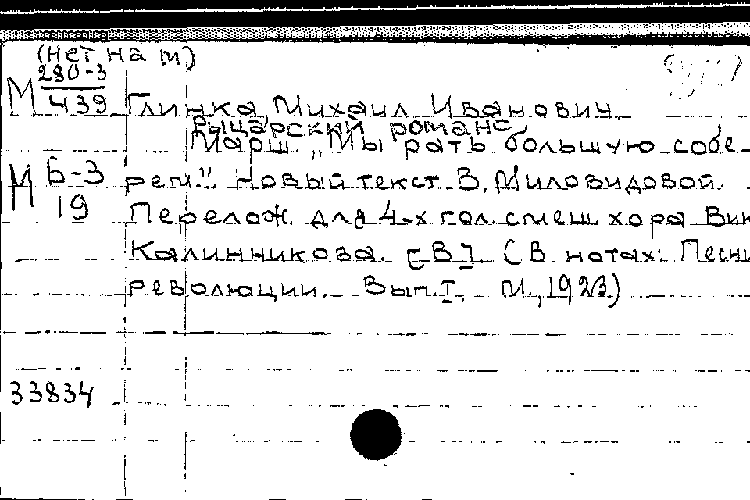 (нет на м)
М 280-3
439 Глинка Михаил Иванович
Рыцарский романс
Марш „Мы рать большую собе-
М Б-3 рем". Новый текст В. Миловидовой.
19 Перелож. для 4-х гол. смеш. хора Вик
Калинникова. [В] (В нотах: Песни
революции. Вып. I, М., 1923)
33834